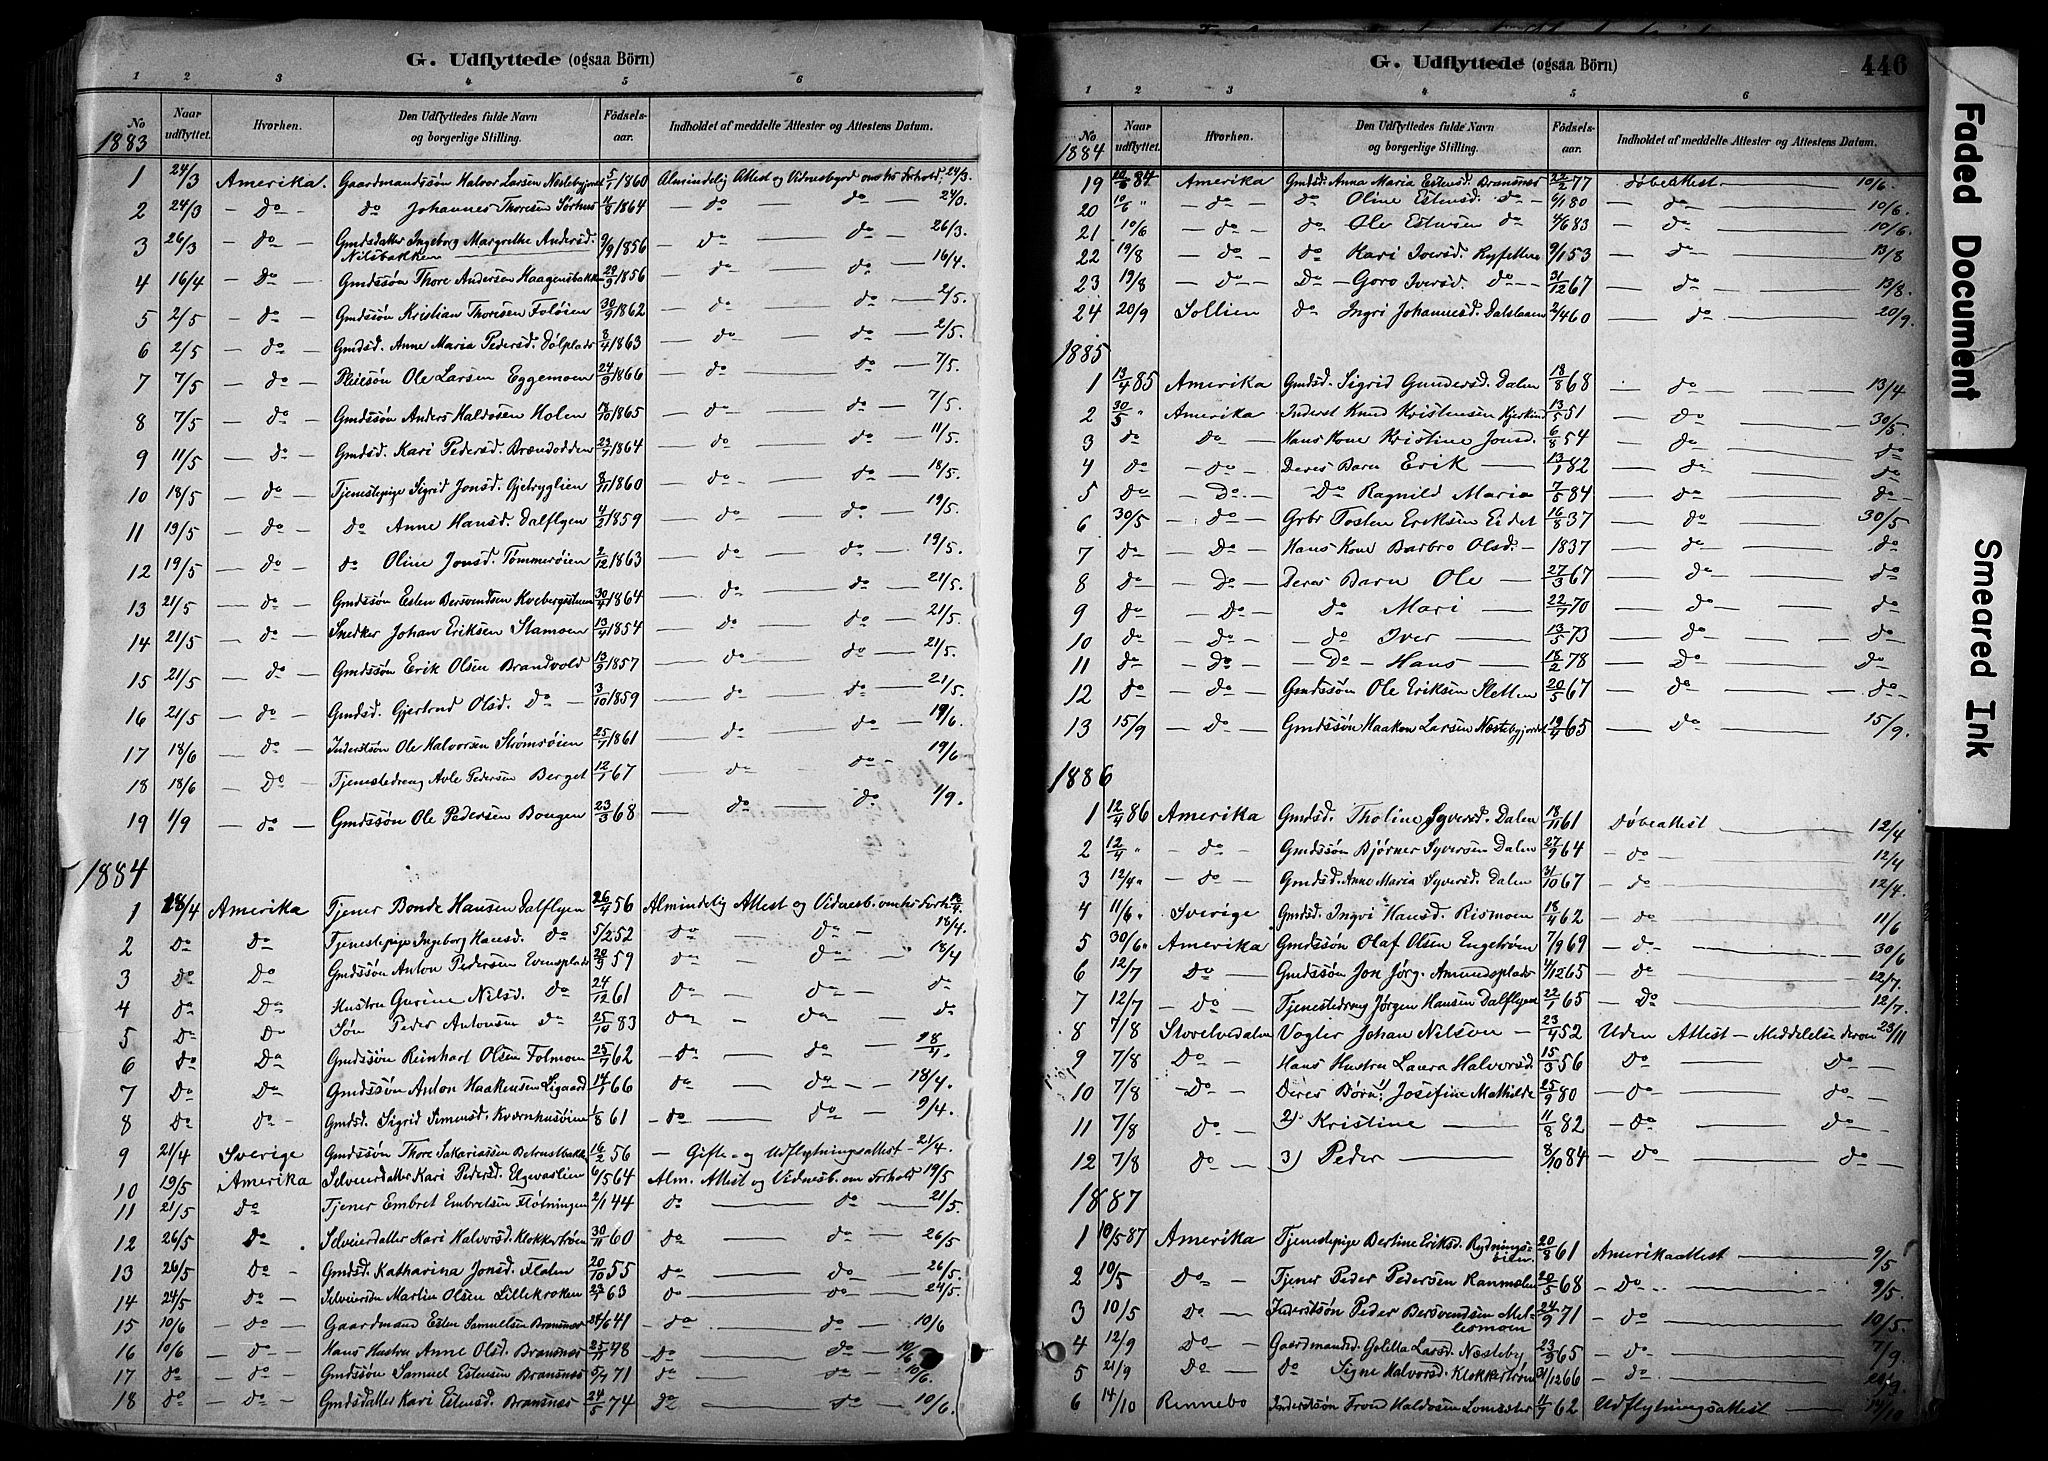 G. Udflyttede (ogsaa Börn)
1 2 3 4 5 6
No Naar udflyttet. Hvorhen. Den Udflyttedes fulde Navn og borgerlige Stilling. Födsels-aar. Indholdet af meddelte Attester og Attestens Datum.
1883
1 24/3 Amerika. Gaardmandssön Halvor Larsen Næstebyjordet 5/1 1860 Almindelig Attest og Vidnesbyrd om hs Forhold. 24/3.
2 24/3 — do — do Johannes Thoresen Sørhus 1864 — do — do — 24/3.
3 26/3 — do — Gmdsdatter Ingeborg Margrethe Andersd. 9/9 1856 — do — do — 26/3.
Nilsbakken
4 16/4 — do — Gmdssön Thore Andersen Haagensbakken 29/9 1856 — do — do — 16/4.
5 2/5 — do — Gmdssön Kristian Thoresen Foløien 30/9 1862 — do — do — 2/5.
6 2/5 — do — Gmdsd. Anne Maria Pedersd. Dølplads 8/4 1863 — do — do — 2/5.
7 7/5 — do — Pleiesön Ole Larsen Eggemoen 24/3 1866 — do — do — 7/5.
8 7/5 — do — Gmdssön Anders Haldosen Holen 1865 — do — do — 7/5.
9 11/5 — do — Gmdsd. Kari Pedersd. Brændodden 23/7 1864 — do — do — 11/5.
10 18/5 — do — Tjenestepige Sigrid Jonsd. Gjetryglien 8/11 1860 — do — do — 18/5.
11 19/5 — do — do Anne Hansd. Dalflyen 4/2 1859 — do — do — 19/5.
12 19/5 — do — do Oline Jonsd. Tommerøien 2/12 1863 — do — do — 19/5.
13 21/5 — do — Gmdssön Esten Bersvendsen Kvebergsstuen 30/4 1864 — do — do — 21/5.
14 21/5 — do — Snedker Johan Eriksen Stamoen 13/4 1854 — do — do — 21/5.
15 21/5 — do — Gmdssön Erik Olsen Brandvold 13/9 1857 — do — do — 21/5.
16 21/5 — do — Gmdsd. Gjertrud Olsd. do — 3/10 1859 — do — do — 21/5.
17 18/6 — do — Inderstsön Ole Halvorsen Strømsøien 25/7 1861 — do — do — 19/6
18 18/6 — Do — Tjenestedreng Avle Pedersen Berget 12/1 67 — do — do — 19/6
19 1/9 — do — Gmdssön Ole Pedersen Bongen 23/3 68 — do — do — 1/9.
1884
1 18/4 Amerika Tjener Bonde Hansen Dalflyen 26/4 56 Almindelig Attest og Vidnesb. om hs Forh:
2 do Do Tjenestepige Ingeborg Hansd. do 5/2 52 do — do — 18/4.
3 do Do Gmdssön Anton Pedersen Evensplads 59 do — do — 18/4
4 do Do Hustru Gurine Nilsd. do 24/12 61 do — do — do
5 do Do Søn Peder Antonsen do 25/10 83 do — do — do
6 do Do Gmdssön Reinhart Olsen Folmoen 25/7 62 — do — do — 28/4.
7 Do Do Gmdssön Anton Haakensen Ligaard 14/1 66 do — do — 18/4.
8 Do Do — Gmdsd. Sigrid Simensd. Kværnhusøien 1/8 61 — do — do — 9/4.
9 21/4 Sverige Gmdssön Thore Sakariassen 16/2 56 — Gifte- og Udflytningsattest — 21/4.
10 19/5 Amerika Selveierdatter Kari Pedersd. Elgvaslien 6/5 64 Alm. Attest og Vidnesb. om Forhold 19/5
11 21/5 do Tjener Embret Embretsen Fløtningen 2/1 44 do — do — 21/5.
12 26/5 Do Selveierdatter Kari Halvorsd. Klokkertrøen 30/11 60 do — do — 26/5
13 26/5 do — Gmdsd. Katharina Jonsd. Floten 20/10 55 do — do — 26/5.
14 24/5 — do — Selveiersön Martin Olsen Lillekroken 63 do — do — 24/5.
15 10/6 — do — Gaardmand Esten Samuelsen Bransnes 24/6 41 — do — do — 10/6
16 10/6 — do — Hans Hustru Anne Olsd. Bransnes 25/11 48 do — do — 10/6
17 do — do — Gmdssön Samuel Estensen Bransnes 5/7 71 do — do — 10/6.
18 do — do — Gmdsdatter Kari Estensd. Bransnes 24/5 74 do — do — 10/6.
G. Udflyttede (ogsaa Börn) 446
1 2 3 4 5 6
No Naar udflyttet. Hvorhen. Den Udflyttedes fulde Navn og borgerlige Stilling. Födsels-aar. Indholdet af meddelte Attester og Attestens Datum.
1884
19 10/6 84 Amerika Gmdsd. Anna Maria Estensd. Bransnes 22/2 77 Døbeattest — 10/6.
20 10/6 " — do — do Oline Estensd. do 6/1 80 — do — 10/6.
21 10/6 — do — do Ole Estensen do 4/6 83 — do — 10/6.
22 19/8 — do — do Kari Iversd. Ryfetten 9/1 53 — do — 13/8
23 19/8 — do — Do — Goro Iversd. do — 31/12 67 — do — 13/8.
24 20/9 Sollien do Ingri Johannesd. Dalslaaen 2/4 60 — do — 20/9.
1885
1 13/4 85 Amerika Gmdsd. Sigrid Gundersd. Dalen 18/8 68 — do — 13/4
2 30/5 " Amerika Inderst Knud Kristensen Kjerkind 13/5 51 — do — 30/5.
3 do do — Hans Kone Kristine Jonsd. 6/8 54 — do — do
4 do — do — Deres Barn Erik — 13/1 82 — do — do
5 do — Do — — Do Ragnild Maria 7/5 84 — do — do
6 30/5 — do — Grbr Tosten Eriksen Eidet 16/8 37 — do — 30/5
7 do — Do — Hans Kone Barbro Olsd. — 1837 — do — do
8 do — Do — Deres Barn Ole — 27/3 67 — do — do
9 do — Do — do Mari — 22/7 70 — do — do
10 do — do — — do Iver — 13/5 73 — do — do
11 do — do — — Do — Hans — 18/2 78 — Do — do
12 do — do — Gmdssön Ole Eriksen Sletten 20/5 67 — do — do —
13 15/9 — do — Gmdssön Haakon Larsen Næstebyjordet 19/4 65 — do — 15/9.
1886
1 12/4 86 Amerika Gmdsd. Tholine Syversd. Dalen 18/11 61 Døbeattest — 12/4
2 12/4 " — do — Gmdssön Bjørner Syversen Dalen 27/9 64 — do — 12/4
3 12/4 " — do — Gmdsd. Anne Maria Syversd. Dalen 31/10 67 — do — 12/4.
4 11/6 " Sverige Gmdsd. Ingri Hansd. Rismoen 18/4 62 — do — 11/6
5 30/6 " Amerika Gmdssön Olaf Olsen Engetrøen 7/9 69 — do — 30/6
6 12/7 do — Gmdssön Jon Jörg. Amundsplads 1/12 65 — do — 12/7.
7 12/7 — do — Tjenestedreng Jørgen Hansen Dalflyen 22/1 65 — Do — 12/7.
8 7/8 Skovelvedalen Vogter Johan Nilsen — 23/4 52 Uden Attest — Meddelelse derom 23/11
9 7/8 Do — Hans Hustru Laura Halvorsd. 15/3 56 Do — Do —
10 7/8 — Do — Deres Børn: 1) Josefine Mathilde 25/9 80 — do — do —
11 7/8 do — 2) Kristine — 11/8 82 — do — do —
12 7/8 — do — 3) Peder — 8/10 84 — do — do —
1887
1 10/5 87 Amerika Tjenestepige Bertine Eriksd. Rydnings- 20/8 61 Amerikaattest — 9/5
øien
2 10/5 Do — Tjener Peder Pedersen 20/5 68 — Do — 9/5.
3 10/5 Do — Inderstsön Peder Bersvendsen Mel- 24/9 71 — do — 10/5.
lesmoen
4 12/9 Do — Gaardmandsd. Golilla Larsd. Næsteby 23/5 65 — do — 7/9.
5 21/9 Do — Do Signe Halvorsd. Klokkertrøen 31/12 66 — do —
6 14/10 Rennebo Inderstsön Trond Haldosen 11/7 62 Udflytningsattest — 14/10
Faded Document
Smeared Ink